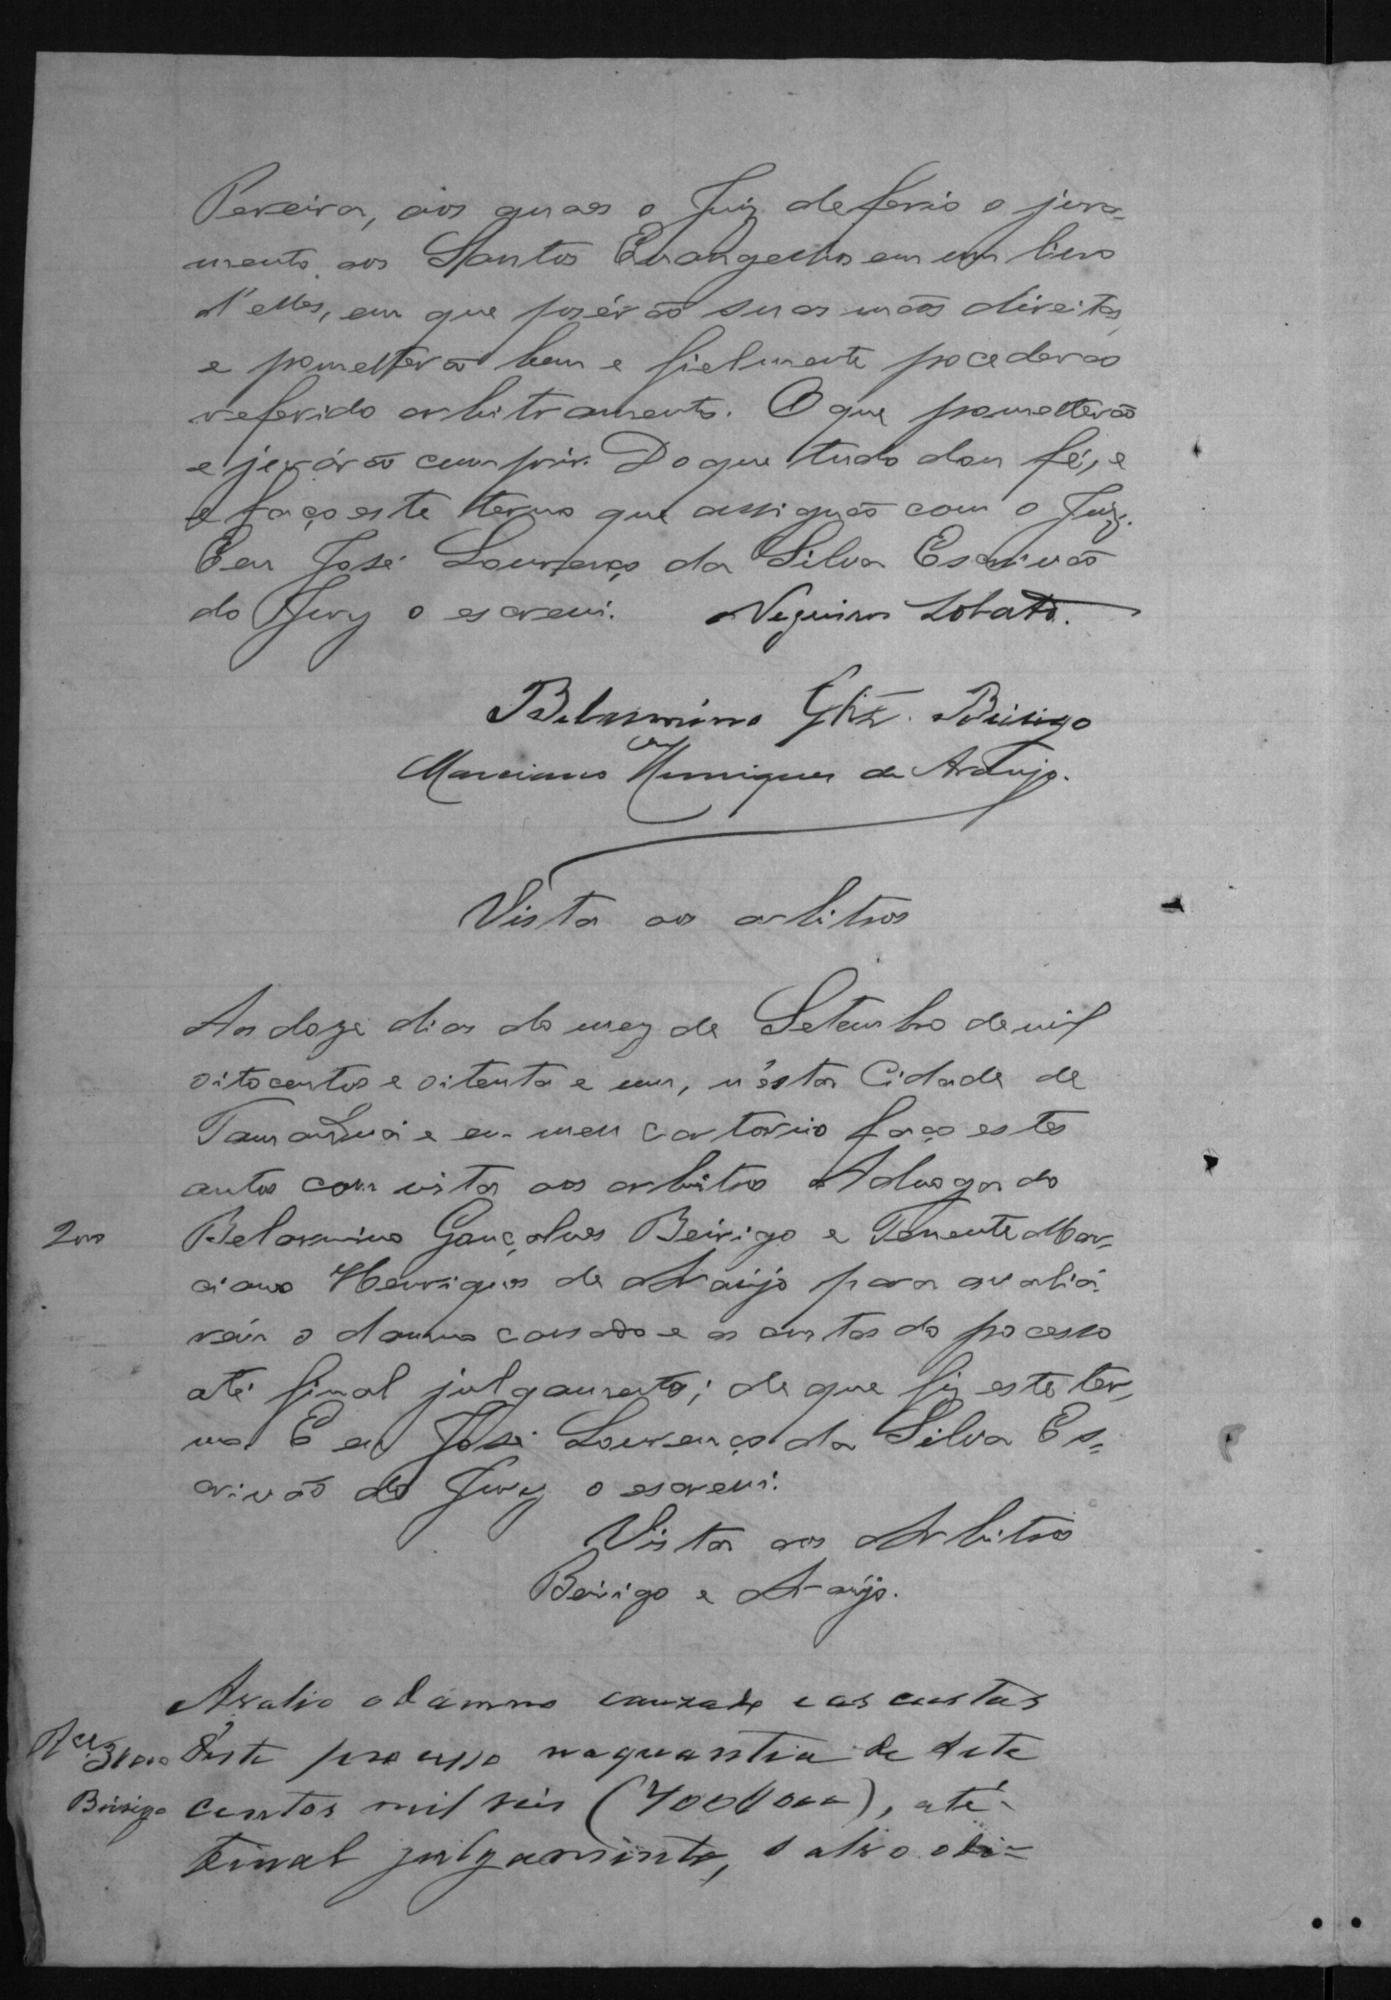 Pereira, aos quaes o Juiz deferio o jura-
mento aos Santos Evangelhos em um livro
d'elles, em que poserão suas mãos direitas,
e prometterão bem e fielmente proceder ao
referido arbitramento. O que prometterão
e jurárão cumprir. Do que tudo dou fé, e
e faço este termo que assignão com o Juiz.
Eeu José Lourenço da Silva Escrivão
do Jury o escrevi. Lobato.
Belarmino Glz. Beirigo
Marciano Henriques de Araujo.
Vista aos arbitros
Aos doze dias do mez de Setembro de mil
oitocentos e oitenta e um, n'esta Cidade de
e em meu cartorio faço estes
autos com vista aos arbitros Advogado
200 Belarmino Gonçalves Beirigo e Tenente Mar-
ciano Henriques de Araújo para avaliá-
rem o damno causado e as custas do processo
até final julgamento; de que fiz este ter-
mo. E eu José Lourenço da Silva Es-
crivão do Jury o escrevi.
Vista aos Arbitros
Beirigo e Araújo.
Avalio o damno cauzado e as custas
d'este processo na quantia de sete
Beirigo centos mil réis (700$000), até
final julgamento, salvo o di-